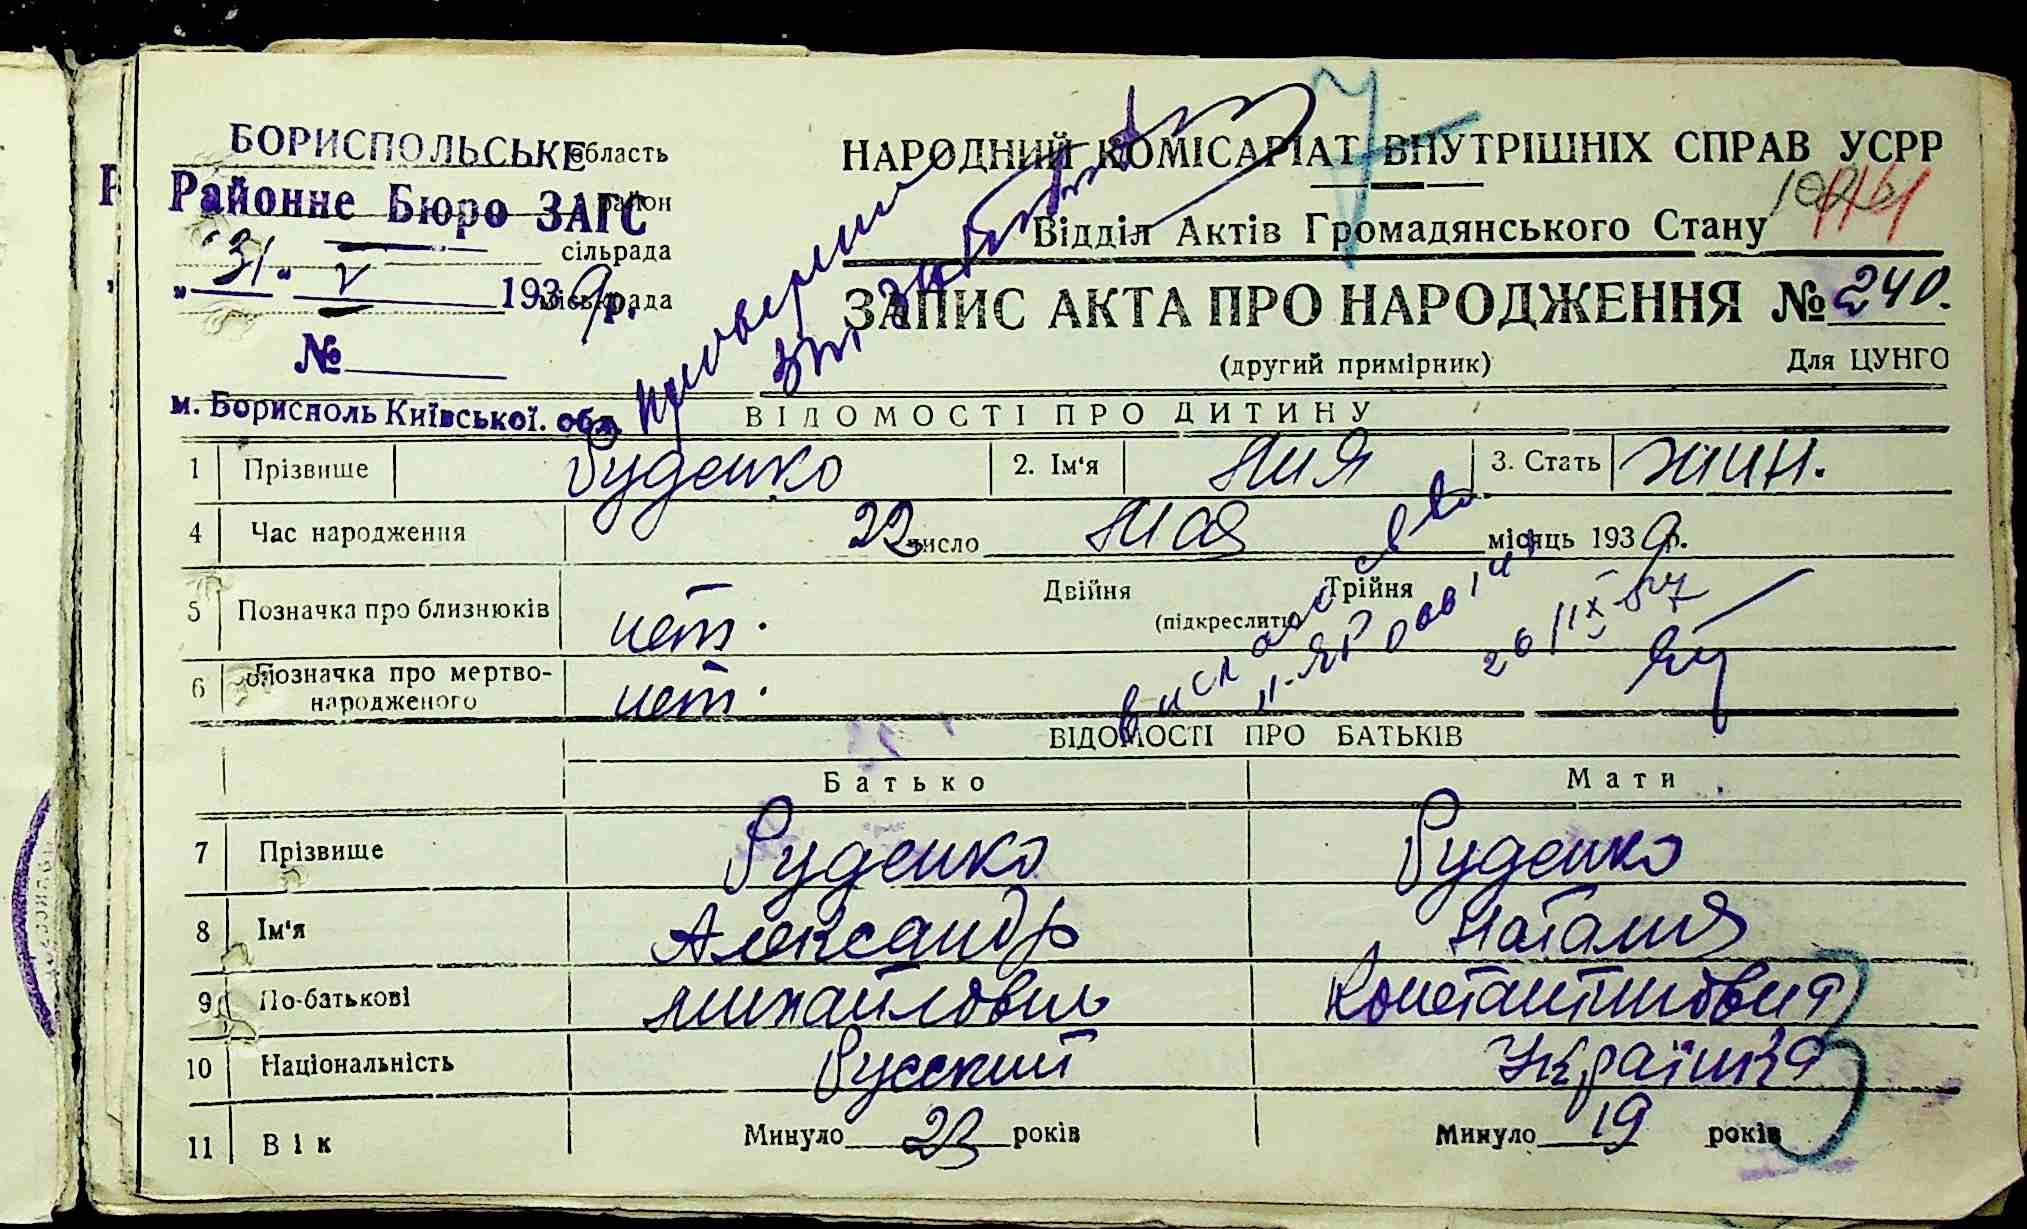 БОРИСПОЛЬСЬКЕ область
Районне Бюро ЗАГС район
сільрада
„31“ V 1939 р. міськрада
№
м. Бориспіль Київської обл.
НАРОДНИЙ КОМІСАРІАТ ВНУТРІШНІХ СПРАВ УСРР
Відділ Актів Громадянського Стану
ЗАПИС АКТА ПРО НАРОДЖЕННЯ № 240.
(другий примірник) Для ЦУНГО
ВІДОМОСТІ ПРО ДИТИНУ
1 Прізвище Руденко 2. Ім'я Ния 3. Стать жин.
4 Час народження 22 число мая місяць 1939 р.
5 Позначка про близнюків нет. Двійня Трійня
(підкреслити)
6 Позначка про мертво-
народженого нет.
ВІДОМОСТІ ПРО БАТЬКІВ
Батько Мати
7 Прізвище Руденко Руденко
8 Ім'я Александр Наталия
9 По-батькові Михайлович Константиновна
10 Національність Русский Українка
11 Вік Минуло 23 років Минуло 19 років